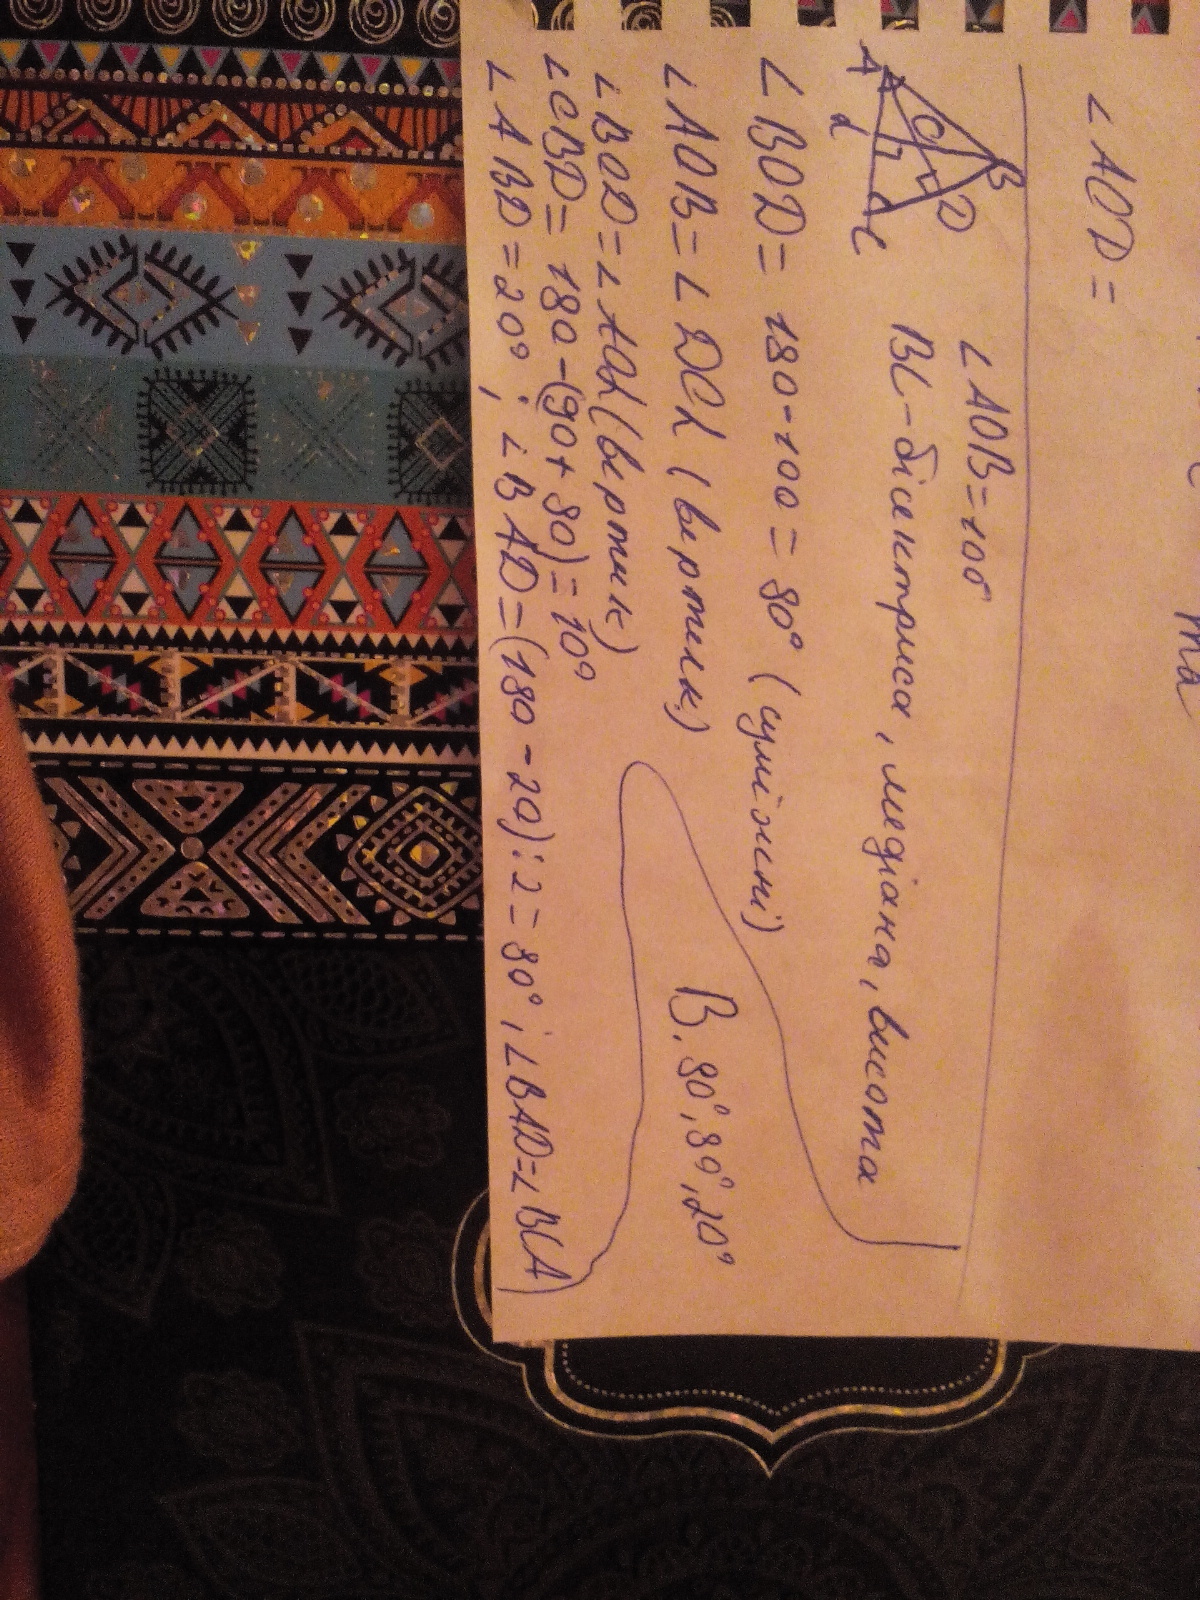 ∠AOD =
∠AOB=100°
BL-бісектриса, медіана, висота
A
B
O
D
L
C
∠BOD= 180-100= 80° (суміжні)
∠AOB=∠DOL (вертик)
∠BOD=∠AOL(вертик)
∠CBD= 180-(90+80)=10°
∠ABD=20°; ∠BAD=(180-20):2=80°; ∠BAD=∠BCA)
В. 80°, 80°, 20°